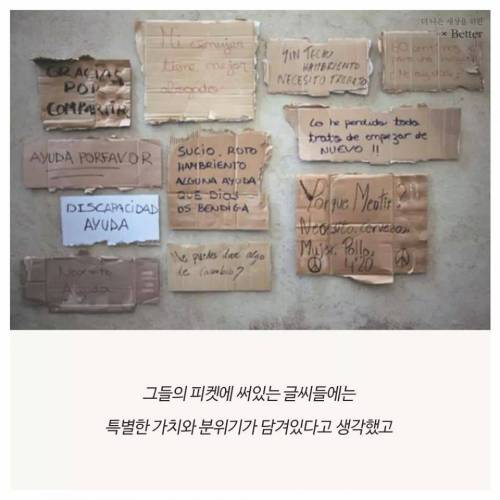 더 나은 세상을 위한
× Better
GRACIAS
POR
COMPARTIR
Mi
tiene mejor
abogado
SIN TECHO
HAMBRIENTO
NECESITO TRABAJO
Lo he perdido todo
trato de empezar de
NUEVO !!
AYUDA PORFAVOR
SUCIO, ROTO
HAMBRIENTO
ALGUNA AYUDA
QUE DIOS
OS BENDIGA
DISCAPACIDAD
AYUDA
Porque Mentir?
Necesito, cerveza,
Mujer, Pollo,
4'20
Necesito
Ayuda
Me puedes dar algo
de cambio?
그들의 피켓에 써있는 글씨들에는
특별한 가치와 분위기가 담겨있다고 생각했고